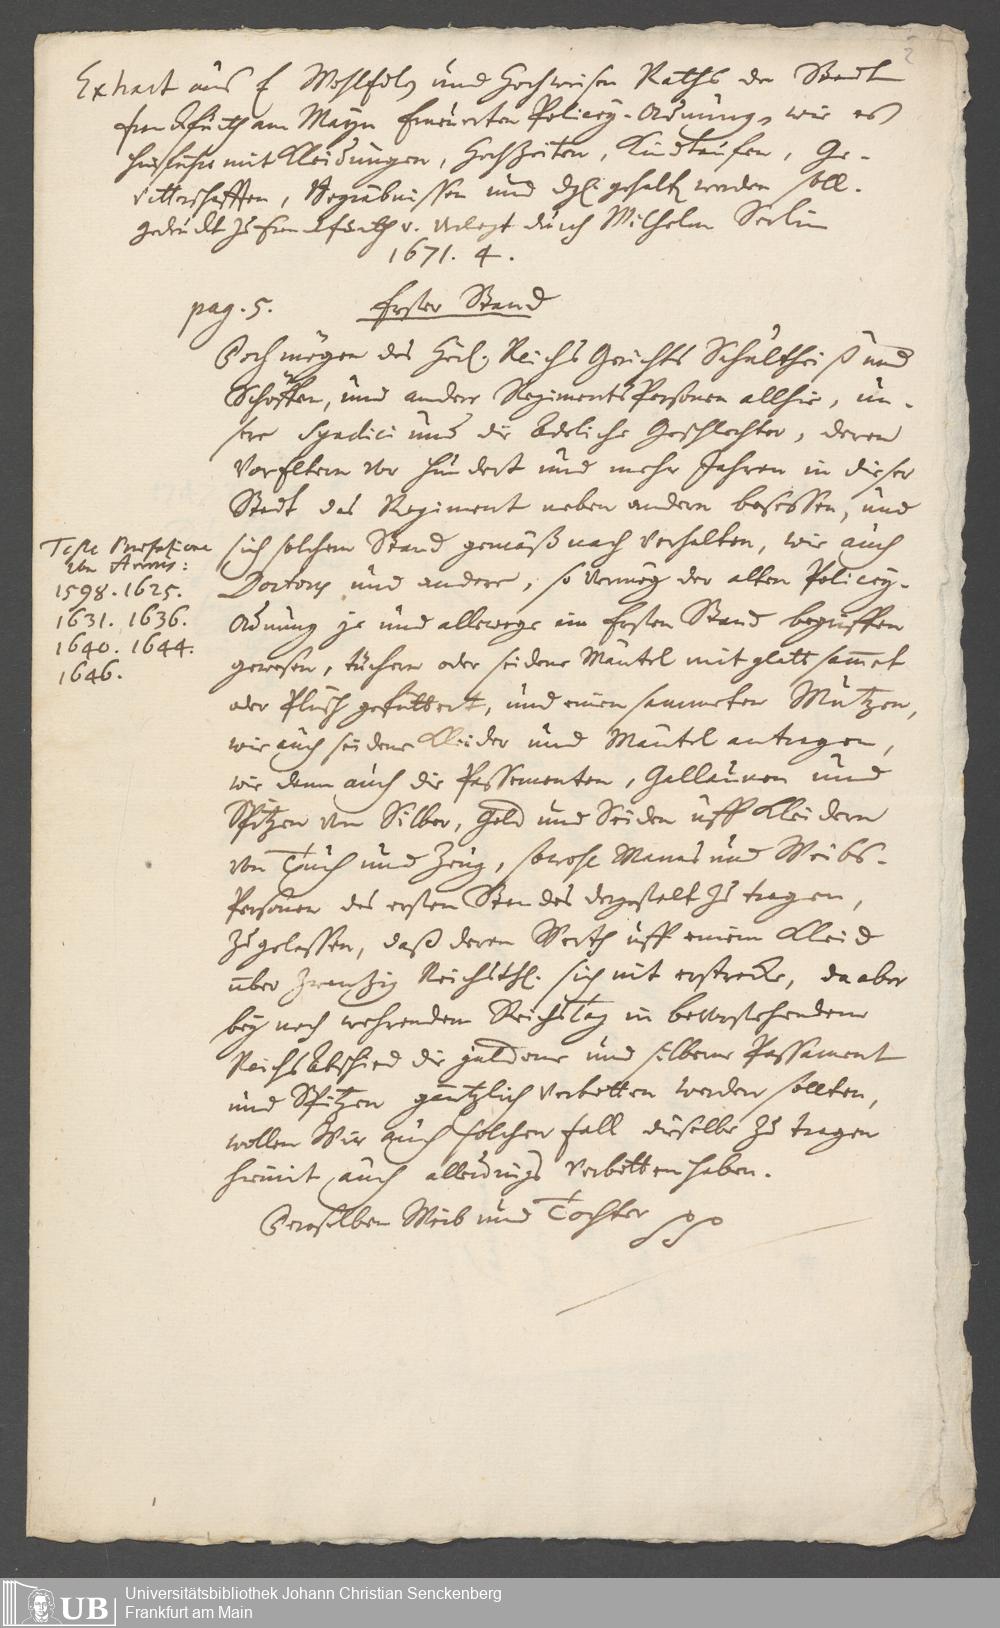 2
Extract aus E. Wohlfürs. und Hochweisen Raths der Stadt
Franckfurth am Mayn Erneuerten Policey-Ordnung, wie es
hinführo mit Kleidungen, Hochzeiten, Kindtaufen, Ge-
vatterschafften, Begräbnissen und dgl. gehalt. werden soll.
gedruckt zu Franckfurth v. verlegt durch Wilhelm Serlin
1671. 4.
pag. 5. Erster Stand
Doch mögen des Heil. Reichs Gerichts Schultheiß und
Schöffen, und andere Regiments Personen allhie, un-
sere Syndici und die Adeliche Geschlechter, deren
VorEltern vor hundert und mehr Jahren in dieser
Stadt das Regiment neben andern besessen, und
sich solchem Stand gemäß nach verhalten, wie auch
Doctores und andere, so vermög der alten Policey-
Ordnung je und allewege im Ersten Stand begriffen
gewesen, tücherne oder seidene Mäntel mit glatt sammet
oder Plüsch gefüttert, und einen sammeten Mützen,
wie auch seidene Kleider und Mäntel antragen,
wie dann auch die Passementen, Gallaunen und
Spitzen von Silber, Gold und Seiden uff Kleidern
von Tuch und Zeug, sowohl Manns und Weibs-
Personen des ersten Standes dergestalt zu tragen,
zugelassen, daß deren Werth uff einem Kleid
über zwantzig Reichsthl. sich nit erstrecke, da aber
bey noch wehrendem ReichsTag in bevorstehendem
ReichsAbschied die guldene und silberne Passament
und Spitzen gäntzlich verbotten werden sollten,
wollen Wir auch solchen fall dieselbe zu tragen
hiemit auch allerdings verbotten haben.
Deroselben Weib und Tochter pp
Teste Praefatione
de Annis:
1598. 1625.
1631. 1636.
1640. 1644.
1646.
UB
Universitätsbibliothek Johann Christian Senckenberg
Frankfurt am Main